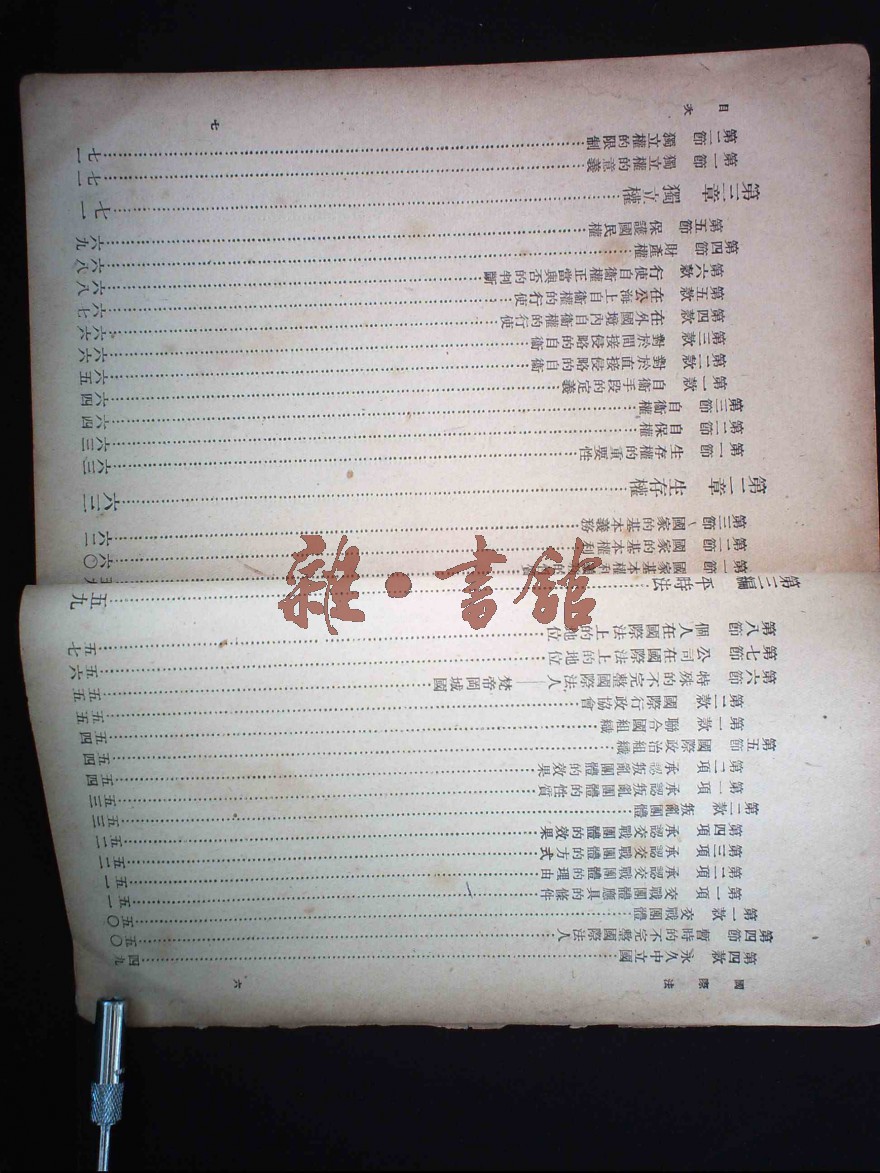 國際法
六
第四款 永久中立國 四九
第四節 暫時的不完整國際法人 五〇
第一款 交戰團體 五〇
第一項 交戰團體應具的條件 五一
第二項 承認交戰團體的理由 五一
第三項 承認交戰團體的方式 五二
第四項 承認交戰團體的效果 五二
第二款 叛亂團體 五三
第一項 承認叛亂團體的性質 五三
第二項 承認叛亂團體的效果 五四
第五節 國際政治組織 五四
第一款 聯合國組織 五四
第二款 國際行政協會 五五
第六節 特殊的不完整國際法人——梵帝岡城國 五五
第七節 公司在國際法上的地位 五六
第八節 個人在國際法上的地位 五七
第三編 平時法 五九
第一節 國家基本權利
第二節 國家的基本權利 六〇
第三節 國家的基本義務 六二
第二章 生存權 六三
第一節 生存權的重要性 六三
第二節 自保權 六三
第三節 自衛權 六四
第一款 自衛手段的定義 六四
第二款 對於直接侵略的自衛 六五
第三款 對於間接侵略的自衛 六六
第四款 在外國境內自衛權的行使 六六
第五款 在公海上自衛權的行使 六七
第六款 行使自衛權正當與否的判斷 六八
第四節 財產權 六八
第五節 保護國民權 六九
第三章 獨立權 七一
第一節 獨立權的意義 七一
第二節 獨立權的限制 七一
目次
七
雜·書館